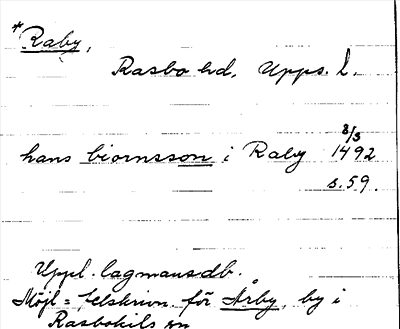 *Raby,
Rasbo hd, Upps. l.
8/3
hans biornsson i Raby 1492
s. 59.
Uppl. lagmansdb.
Möjl = felskrivn. för Årby, by i
Rasbokils sn